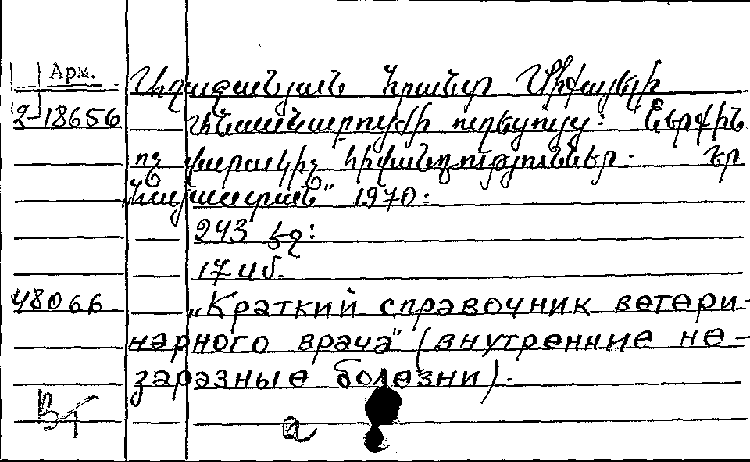 Арм.
Աղաջանյան Հրանտ Միքայելի
2-18656 Անասնաբույժի ուղեցույց: Ներքին
ոչ վարակիչ հիվանդություններ. Եր
"Հայաստան" 1970.
243 էջ:
17 սմ.
48066 „Краткий справочник ветери-
нарного врача" (внутренние не-
заразные болезни).
a